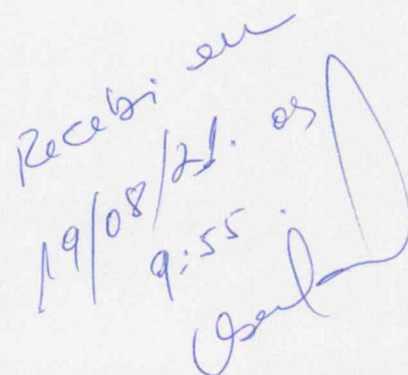 Recebi em
19/08/21. às
9:55.